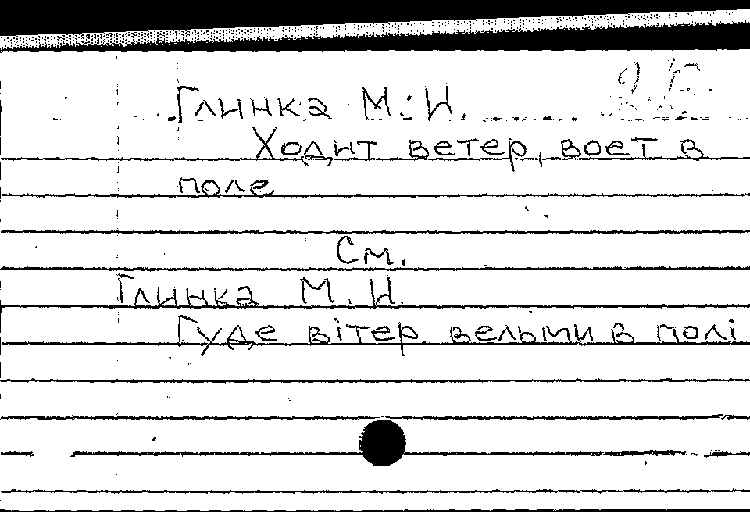 Глинка М.И.
Ходит ветер, воет в
поле
См.
Глинка М.И.
Гуде вітер вельми в полі